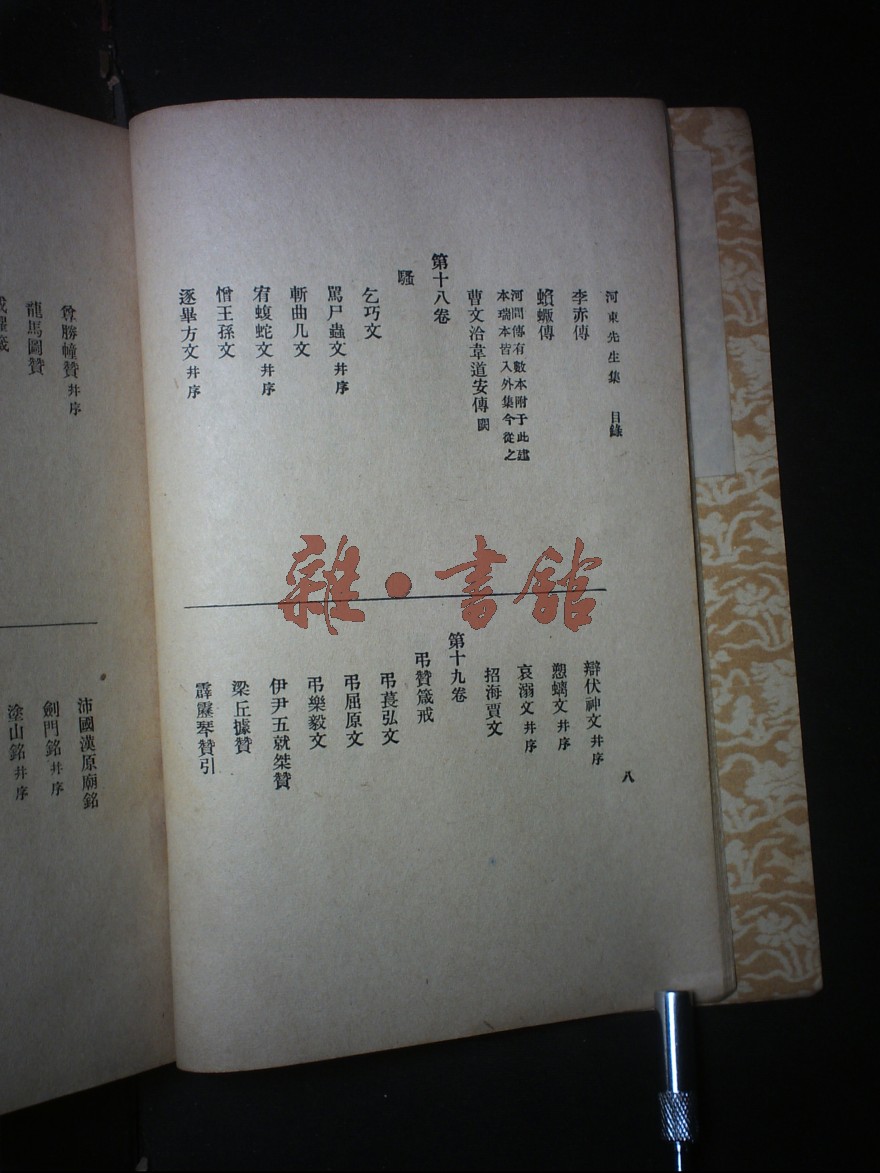 河東先生集 目錄
李赤傳
蝜蝂傳
河間傳有數本附于此建
本瑞本皆入外集今從之
曹文洽韋道安傳 闕
第十八卷
騷
乞巧文
罵尸蟲文 并序
斬曲几文
宥蝮蛇文 并序
憎王孫文
逐畢方文 并序
辯伏神文 并序
愬螭文 并序
哀溺文 并序
招海賈文
第十九卷
弔贊箴戒
弔萇弘文
弔屈原文
弔樂毅文
伊尹五就桀贊
梁丘據贊
霹靂琴贊引
八
尊勝幢贊 并序
龍馬圖贊
沛國漢原廟銘
劍門銘 并序
塗山銘 并序
雜·書館